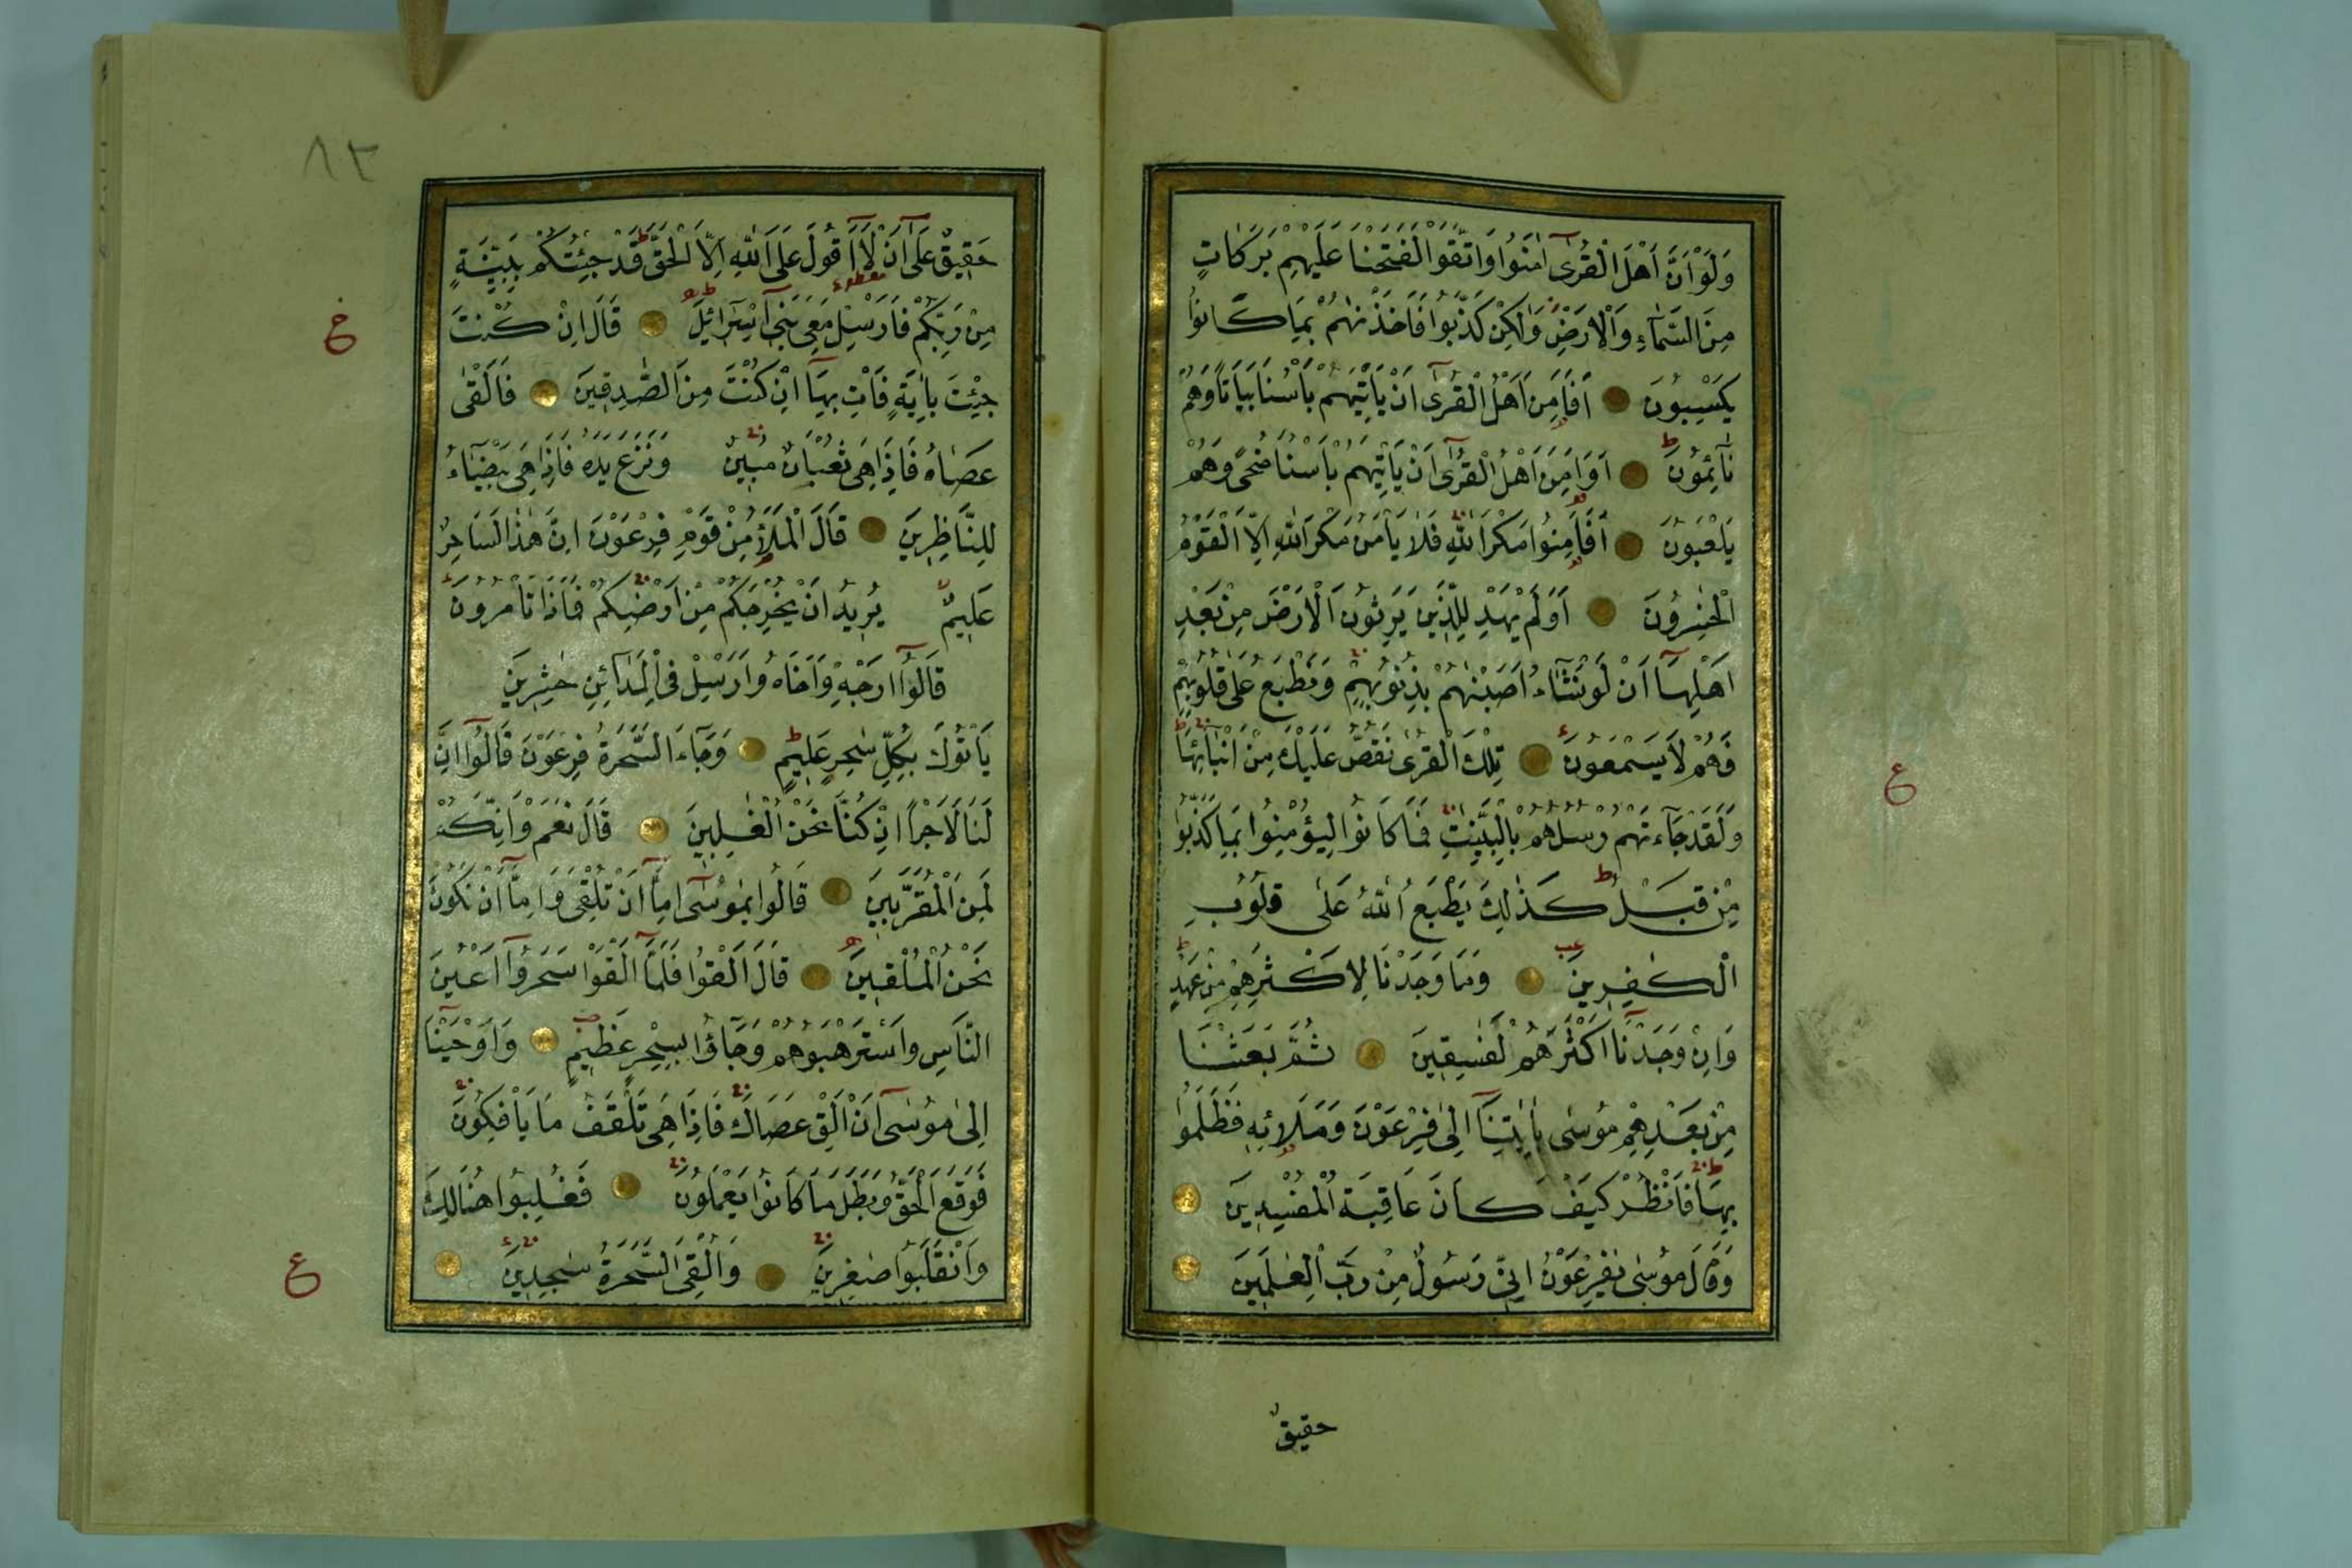 وَلَوْ اَنَّ اَهْلَ الْقُرٰٓى اٰمَنُوا وَاتَّقَوْا لَفَتَحْنَا عَلَيْهِمْ بَرَكَاتٍ
مِنَ السَّمَاءِ وَالْاَرْضِ وَلٰكِنْ كَذَّبُوا فَاَخَذْنٰهُمْ بِمَا كَانُوا
يَكْسِبُونَ اَفَاَمِنَ اَهْلُ الْقُرٰٓى اَنْ يَأْتِيَهُمْ بَأْسُنَا بَيَاتًا وَهُمْ
نَائِمُونَ اَوَاَمِنَ اَهْلُ الْقُرٰٓى اَنْ يَأْتِيَهُمْ بَأْسُنَا ضُحًى وَهُمْ
يَلْعَبُونَ اَفَاَمِنُوا مَكْرَ اللّٰهِ فَلَا يَأْمَنُ مَكْرَ اللّٰهِ اِلَّا الْقَوْمُ
الْخٰسِرُونَ اَوَلَمْ يَهْدِ لِلَّذِينَ يَرِثُونَ الْاَرْضَ مِنْ بَعْدِ
اَهْلِهَٓا اَنْ لَوْ نَشَٓاءُ اَصَبْنٰهُمْ بِذُنُوبِهِمْ وَنَطْبَعُ عَلٰى قُلُوبِهِمْ
فَهُمْ لَا يَسْمَعُونَ تِلْكَ الْقُرٰى نَقُصُّ عَلَيْكَ مِنْ اَنْبَائِهَا
ع
وَلَقَدْ جَٓاءَتْهُمْ رُسُلُهُمْ بِالْبَيِّنٰتِ فَمَا كَانُوا لِيُؤْمِنُوا بِمَا كَذَّبُوا
مِنْ قَبْلُ كَذٰلِكَ يَطْبَعُ اللّٰهُ عَلٰى قُلُوبِ
الْكٰفِرِينَ وَمَا وَجَدْنَا لِاَكْثَرِهِمْ مِنْ عَهْدٍ
وَاِنْ وَجَدْنَٓا اَكْثَرَهُمْ لَفٰسِقِينَ ثُمَّ بَعَثْنَا
مِنْ بَعْدِهِمْ مُوسٰى بِاٰيٰتِنَٓا اِلٰى فِرْعَوْنَ وَمَلَائِهِ فَظَلَمُوا
بِهَا فَانْظُرْ كَيْفَ كَانَ عَاقِبَةُ الْمُفْسِدِينَ
وَقَالَ مُوسٰى يٰفِرْعَوْنُ اِنِّي رَسُولٌ مِنْ رَبِّ الْعٰلَمِينَ
حقيقٌ
٨٣
حَقِيقٌ عَلٰٓى اَنْ لَٓا اَقُولَ عَلَى اللّٰهِ اِلَّا الْحَقَّ قَدْ جِئْتُكُمْ بِبَيِّنَةٍ
مِنْ رَبِّكُمْ فَاَرْسِلْ مَعِيَ بَنِٓي اِسْرَٓائِيلَ قَالَ اِنْ كُنْتَ
جِئْتَ بِاٰيَةٍ فَأْتِ بِهَٓا اِنْ كُنْتَ مِنَ الصّٰدِقِينَ فَاَلْقٰى
عَصَاهُ فَاِذَا هِيَ ثُعْبَانٌ مُبِينٌ وَنَزَعَ يَدَهُ فَاِذَا هِيَ بَيْضَٓاءُ
لِلنَّاظِرِينَ قَالَ الْمَلَأُ مِنْ قَوْمِ فِرْعَوْنَ اِنَّ هٰذَا لَسَاحِرٌ
عَلِيمٌ يُرِيدُ اَنْ يُخْرِجَكُمْ مِنْ اَرْضِكُمْ فَمَاذَا تَأْمُرُونَ
قَالُٓوا اَرْجِهْ وَاَخَاهُ وَاَرْسِلْ فِي الْمَدَٓائِنِ حٰشِرِينَ
يَأْتُوكَ بِكُلِّ سٰحِرٍ عَلِيمٍ وَجَٓاءَ السَّحَرَةُ فِرْعَوْنَ قَالُٓوا اِنَّ
لَنَا لَاَجْرًا اِنْ كُنَّا نَحْنُ الْغٰلِبِينَ قَالَ نَعَمْ وَاِنَّكُمْ
لَمِنَ الْمُقَرَّبِينَ قَالُوا يٰمُوسٰٓى اِمَّٓا اَنْ تُلْقِيَ وَاِمَّٓا اَنْ نَكُونَ
نَحْنُ الْمُلْقِينَ قَالَ اَلْقُوا فَلَمَّٓا اَلْقَوْا سَحَرُٓوا اَعْيُنَ
النَّاسِ وَاسْتَرْهَبُوهُمْ وَجَٓاؤُ بِسِحْرٍ عَظِيمٍ وَاَوْحَيْنَٓا
اِلٰى مُوسٰٓى اَنْ اَلْقِ عَصَاكَ فَاِذَا هِيَ تَلْقَفُ مَا يَأْفِكُونَ
فَوَقَعَ الْحَقُّ وَبَطَلَ مَا كَانُوا يَعْمَلُونَ فَغُلِبُوا هُنَالِكَ
وَانْقَلَبُوا صٰغِرِينَ وَاُلْقِيَ السَّحَرَةُ سٰجِدِينَ
ع